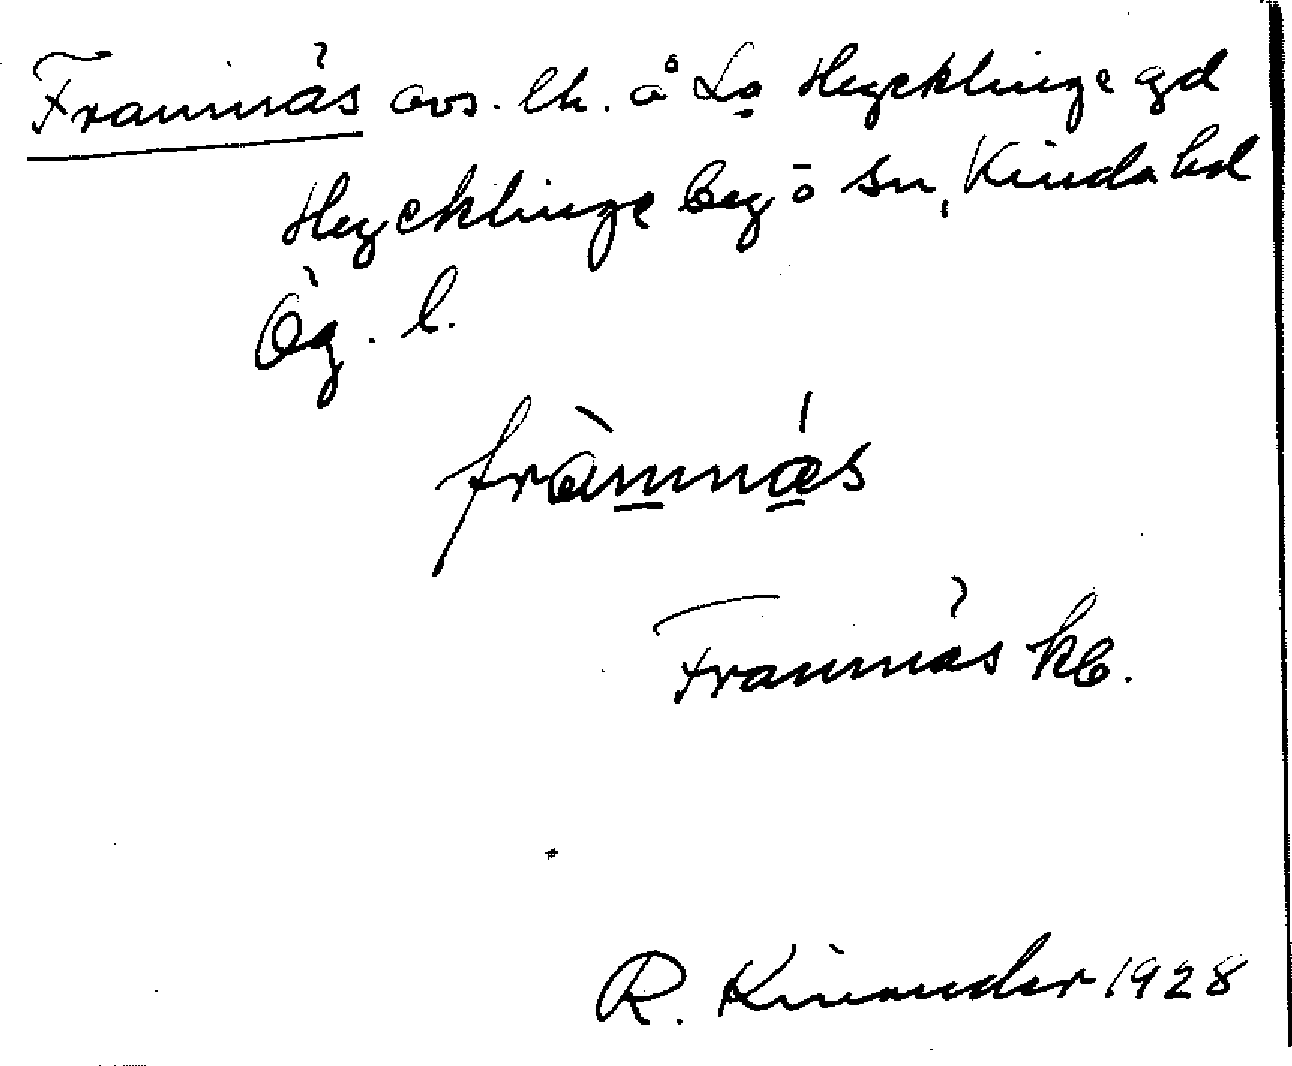 Framnäs avs. lh. å La Hycklinge gd
Hycklinge by o sn, Kinda hd
Ög. l.
fràmnä́s
Framnäs kb.
R. Kinander 1928